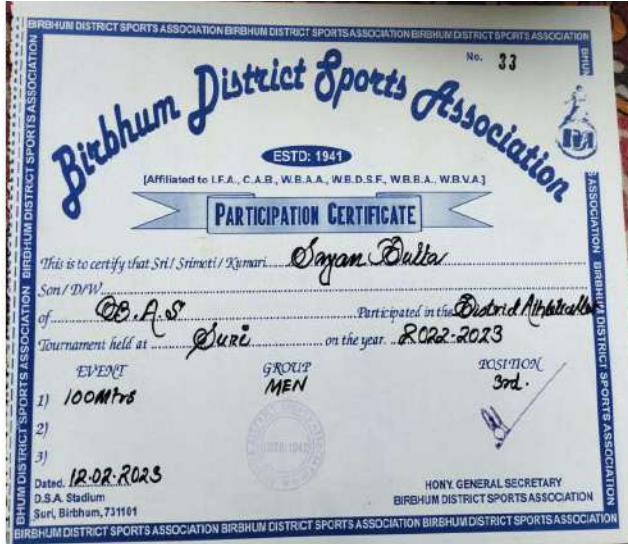 BIRBHUM DISTRICT SPORTS ASSOCIATION BIRBHUM DISTRICT SPORTS ASSOCIATION BIRBHUM DISTRICT SPORTS ASSOCIATION
No. 33
Birbhum District Sports Association
ESTD: 1941
[Affiliated to I.F.A., C.A.B., W.B.A.A., W.B.D.S.F., W.B.B.A., W.B.V.A.]
PARTICIPATION CERTIFICATE
This is to certify that Sri / Srimoti / Kumari Sayan Dutta
Son / D/W
of B.A.S Participated in the District Athletic
Tournament held at Suri on the year. 2022-2023
EVENT GROUP POSITION
1) 100Mtrs MEN 3rd.
2)
3)
Dated. 12-02-2023
D.S.A. Stadium
Suri, Birbhum, 731101
HONY. GENERAL SECRETARY
BIRBHUM DISTRICT SPORTS ASSOCIATION
BIRBHUM DISTRICT SPORTS ASSOCIATION BIRBHUM DISTRICT SPORTS ASSOCIATION BIRBHUM DISTRICT SPORTS ASSOCIATION